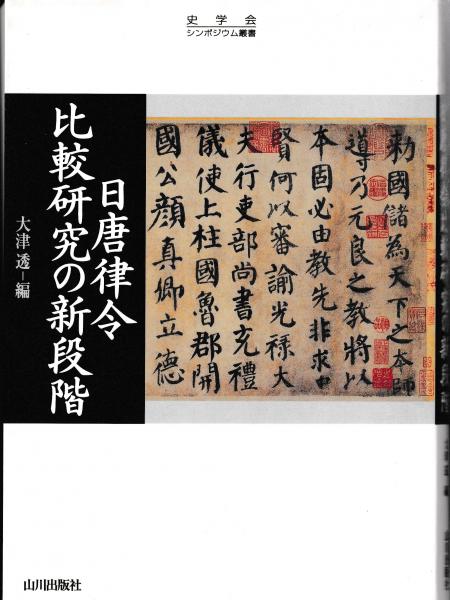 史学会
シンポジウム叢書
日唐律令
比較研究の新段階
大津透–編
勅國儲為天下之本師
導乃元良之教將以
本固必由教先非求中
賢何以審諭光禄大
夫行吏部尚書充禮
儀使上柱國魯郡開
國公顔真卿立德
山川出版社